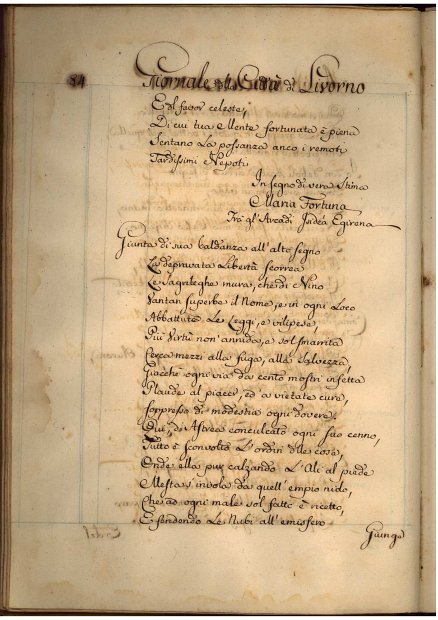 84
Giornale della Città di Livorno
E del favor celeste,
Di cui tua Mente fortunata è piena
Sentano La possanza anco i remoti
Tardissimi Nepoti
In segno di vera Stima
Maria Fortuna
Trà gl'Arcadi Isidea Egirena
Giunta di sua baldanza all'alto segno
La depravata Libertà scorrea
Le sagrileghe mura, che di Nino
Vantan superbe il Nome, e in ogni Loco
Abbattute Le Leggi, e vilipese,
Più Virtù non'annida, e sol smarrita
Cerca mezzi alla fuga, alla salvezza,
Giacche ogni via da cento mostri infetta
Plaude al piacer, ed'a vietate cure,
Soppresso di modestia ogni dovere;
Qui, di Astrea conculcato ogni suo cenno,
Tutto è sconvolto L'ordin delle cose,
Onde ella pur calzando L'Ali al piede
Mesta s'invola da quell'empio nido,
Che ad ogni male sol fatto è ricetto,
E fendendo Le Nubi all'emisfero
Giunge